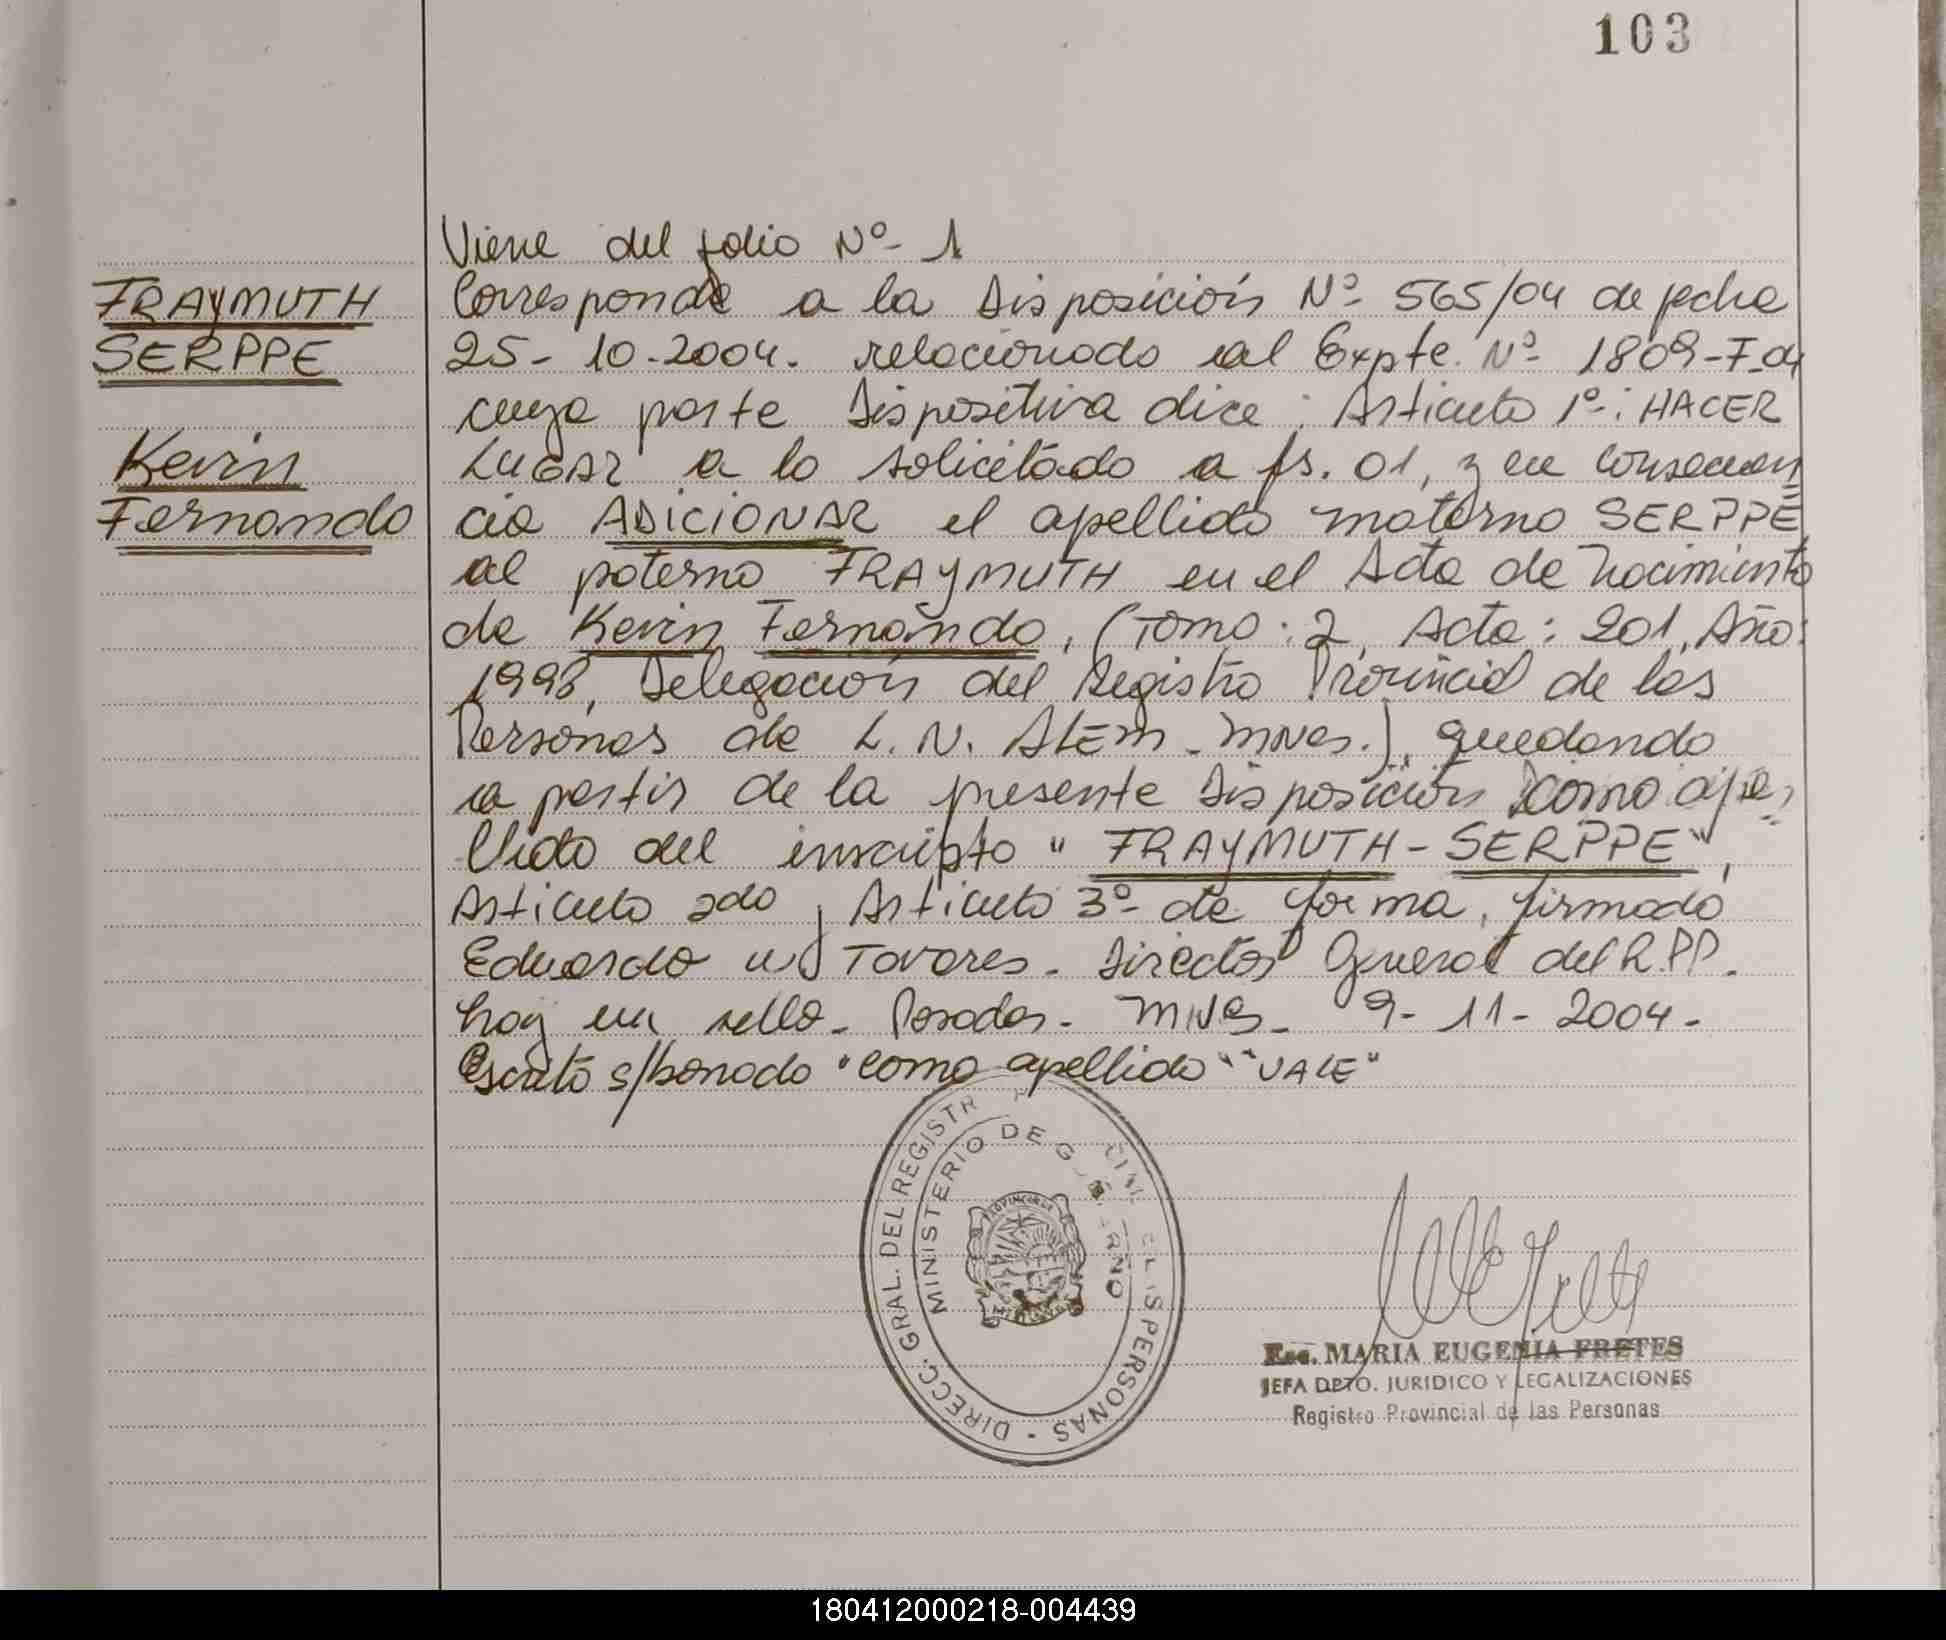 103
Viene del folio Nº- 1
FRAYMUTH
SERPPE
Kevin
Fernando
Corresponde a la Disposición Nº- 565/04 de fecha
25-10-2004. relacionado al Expte. Nº- 1809-F-04
cuya parte Dispositiva dice: Artículo 1º-: HACER
LUGAR a lo solicitado a fs. 01, y en consecuen
cia ADICIONAR el apellido materno SERPPE
al paterno FRAYMUTH en el Acta de Nacimiento
de Kevin Fernando, (Tomo: 2, Acta: 201, Año:
1998, Delegación del Registro Provincial de las
Personas de L. N. ALEM - Mnes.), quedando
a partir de la presente Disposición como ape-
llido del inscripto "FRAYMUTH-SERPPE",
Artículo 2do y Artículo 3º- de forma, firmado
Eduardo Tavares. Director General del R.P.P.
hay un sello. Posadas. Mnes. 9-11-2004.
Escrito s/bonado "como apellido" "VALE"
DIRECC. GRAL. DEL REGISTR PERSONAS
MINISTERIO DE GOBIERNO
Esc. MARIA EUGENIA FRETES
JEFA DPTO. JURIDICO Y LEGALIZACIONES
Registro Provincial de las Personas
180412000218-004439